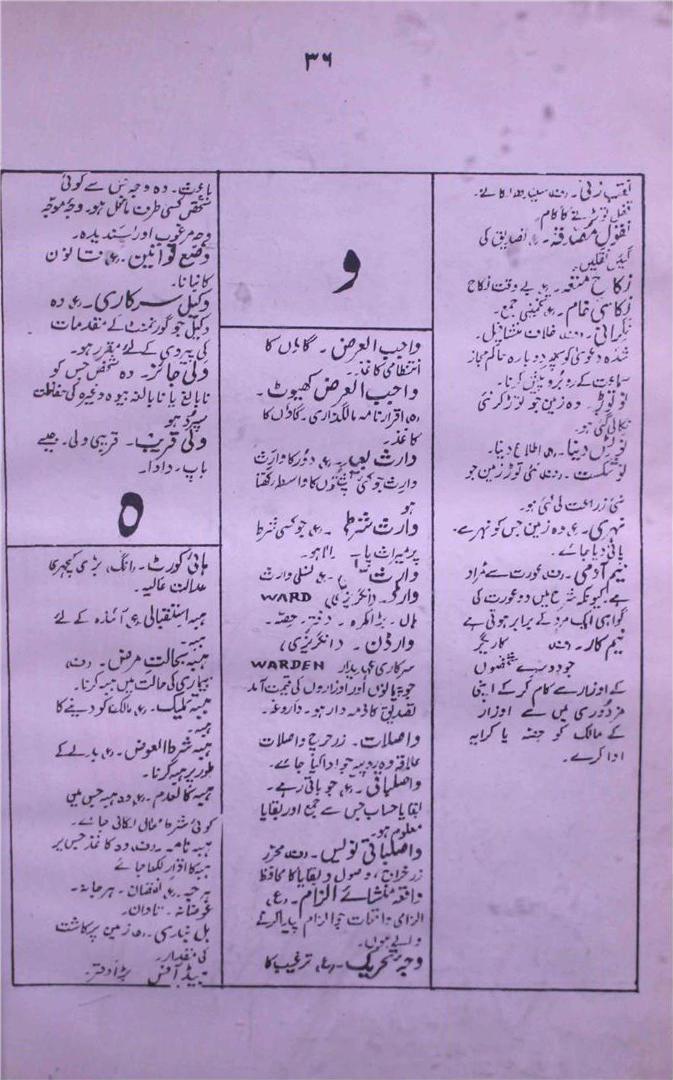 ۳۶
نقب زنی۔
قفل توڑنے کا کام۔
نقول مصدقہ۔ تصدیق کی
گئیں نقلیں۔
نکاح متعہ۔ بے وقت نکاح
نکاسی تمام۔ تخمینی جمع۔
نگرانی۔
شدہ دعوٰی کو کچھ دوبارہ حاکم مجاز
سماعت کے روبرو پیش کرنا۔
نو توڑ۔ وہ زمین جو توڑ کر نئی
نکالی گئی ہو۔
نوٹس دینا۔ اطلاع دینا۔
نو شکست۔ نئی توڑ زمین جو
نئی زراعت لی گئی ہو۔
نہری۔ وہ زمین جس کو نہر سے
پانی دیا جائے۔
نیم آدمی۔ عورت سے مُراد
ہے کیونکہ شرع میں دو عورت کی
گواہی ایک مرد کے برابر ہوتی ہے
نیم کار۔ کاریگر
جو دوسرے شخصوں
کے اوزار سے کام کر کے اپنی
مزدوری میں سے اوزار
کے مالک کو حصہ یا کرایہ
ادا کرے۔
و
واجب العرض۔ گاؤں کا
انتظامی کاغذ۔
واجب العرض کھیوٹ۔
اقرار نامہ مالگذاری۔ گاؤں کا
کاغذ۔
وارث بعید۔ دُور کا وارث
وارث جو کئی پشتوں کا واسطہ رکھتا
ہو
وارث شرط۔ جو کسی شرط
پر میراث پانے والا ہو۔
وارث نسلی وارث
وارڈ۔ (انگریزی) WARD
ہال۔ بڑا کمرہ۔ دفتر۔ حصّہ۔
وارڈن۔ (انگریزی)
WARDEN سرکاری عہدیدار
جو باٹوں اور اوزاروں کی قیمت آمد
تصدیق کا ذمہ دار ہو۔ داروغہ۔
واصلات۔ زر خرچ واصلات
علاقہ وہ روپیہ جو ادا کیا جائے۔
واصلباقی۔ جو باقی رہے۔
بقایا حساب جس سے جمع اور بقایا
معلوم ہو۔
واصلباقی نویس۔ محرر
زر خراج، وصول و بقایا کا محافظ
واقعہ منشائے الزام۔ (ع)
الزامی واقعات جو الزام پیدا کرنے
والے ہوں۔
وجہ تحریک۔ (ع) ترغیب کا
باعث۔ وہ وجہ جس سے کوئی
شخص کسی طرف مائل ہو۔ وجہ موجہ
وجہ مرغوب اور پسندیدہ۔
وضع قوانین۔ (ع) قانون
کا بنانا۔
وکیل سرکاری۔ (ع) وہ
وکیل جو گورنمنٹ کے مقدمات
کی پیروی کے لئے مقرر ہو۔
ولی جائز۔ وہ شخص جس کو
نابالغ یا نابالغہ بیوہ وغیرہ کی حفاظت
سپرد ہو
ولی قریب۔ قریبی ولی۔ جیسے
باپ۔ دادا۔
ہ
ہائی کورٹ۔ انگ، بڑی کچہری
عدالت عالیہ۔
ہبہ استقبالی (ع) آئندہ کے لئے
ہبہ۔
ہبہ بحالت مرض۔ (ف)
بیماری کی حالت میں ہبہ کرنا۔
ہبہ تملیک۔ (ع) مالک کو دینے کا
ہبہ۔
ہبہ شرط العوض۔ (ع) بدلے کے
طور پر ہبہ کرنا۔
ہبہ کالعدم۔ (ع) وہ ہبہ جس میں
کوئی شرط محال لگائی جائے۔
ہبہ نامہ۔ (ف) وہ کاغذ جس پر
ہبہ کا اقرار لکھا جائے
ہرجہ۔ (ع) نقصان۔ ہرجانہ۔
عوضانہ۔ تاوان۔
ہل نیاری۔ زمین پر کاشت
کی مقدار۔
ہیڈ آفس بڑا دفتر۔